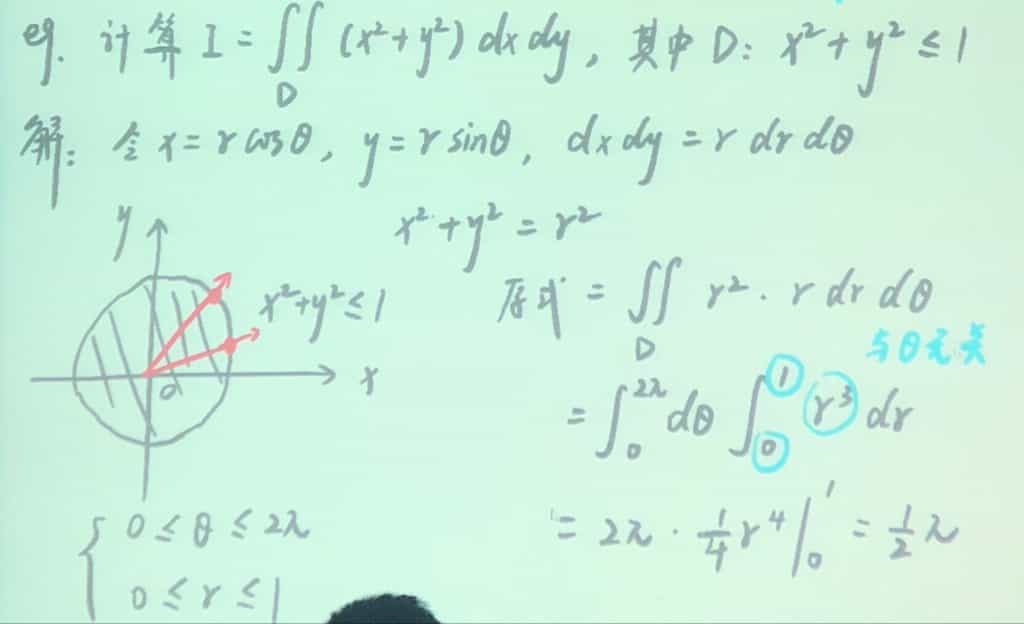 eg. 计算 I = ∬_D (x²+y²) dx dy, 其中 D: x²+y² ≤ 1
解: 令 x = r cosθ, y = r sinθ, dx dy = r dr dθ
x²+y² = r²
y
x²+y² ≤ 1
x
o
原式 = ∬_D r² · r dr dθ
与θ无关
= ∫₀^{2π} dθ ∫₀¹ r³ dr
= 2π · 1/4 r⁴ |₀¹ = 1/2 π
{ 0 ≤ θ ≤ 2π
0 ≤ r ≤ 1